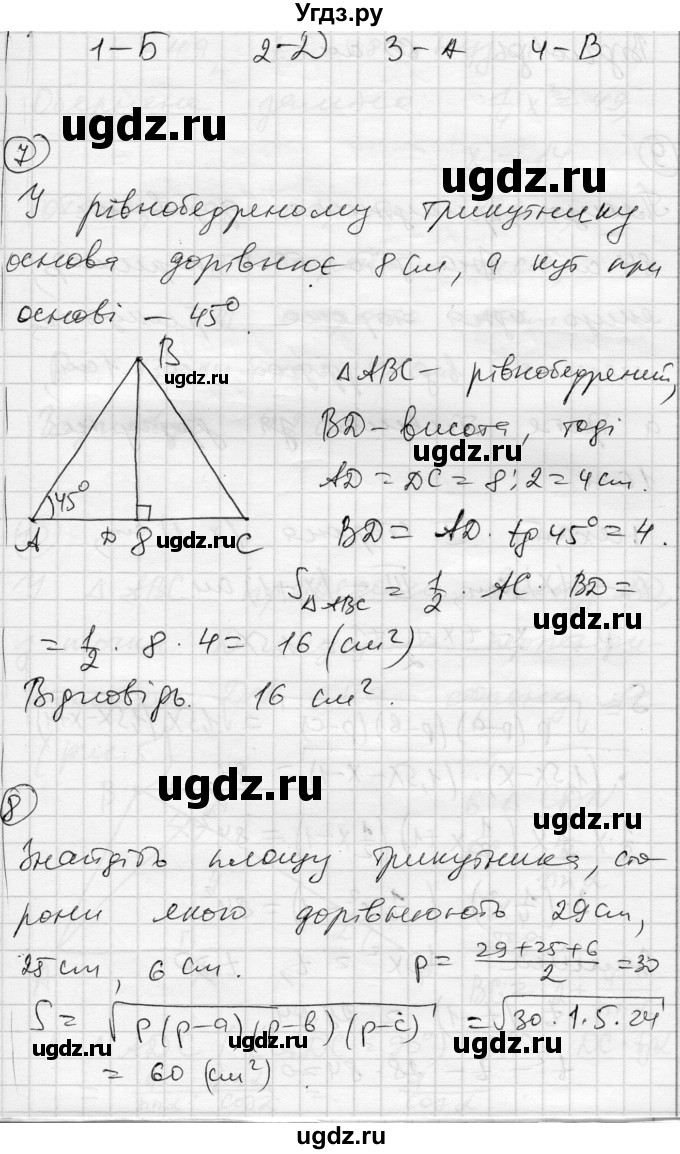 Угдз.ру
1 – Б 2 – D 3 – А 4 – В
ugdz.ru
ugdz.ru
7
У рівнобедреному трикутнику
основа дорівнює 8 см, а кут при
основі – 45°.
B
ugdz.ru
△ABC – рівнобедрений,
BD – висота, тоді
ugdz.ru
AD = DC = 8 : 2 = 4 см.
45°
A D 8 ugdz.ru C
BD = AD · tg 45° = 4.
S△ABC = 1/2 · AC · BD =
ugdz.ru
= 1/2 · 8 · 4 = 16 (см²)
Відповідь. 16 см².
ugdz.ru
8
ugdz.ru
Знайдіть площу трикутника, сто
рони якого дорівнюють 29 см,
25 см, 6 см. p = (29+25+6)/2 = 30
S = √(p(p–a)(p–b)(p–c)) = √(30·1·5·24)
ugdz.ru
= 60 (см²)
ugdz.ru
ugdz.ru